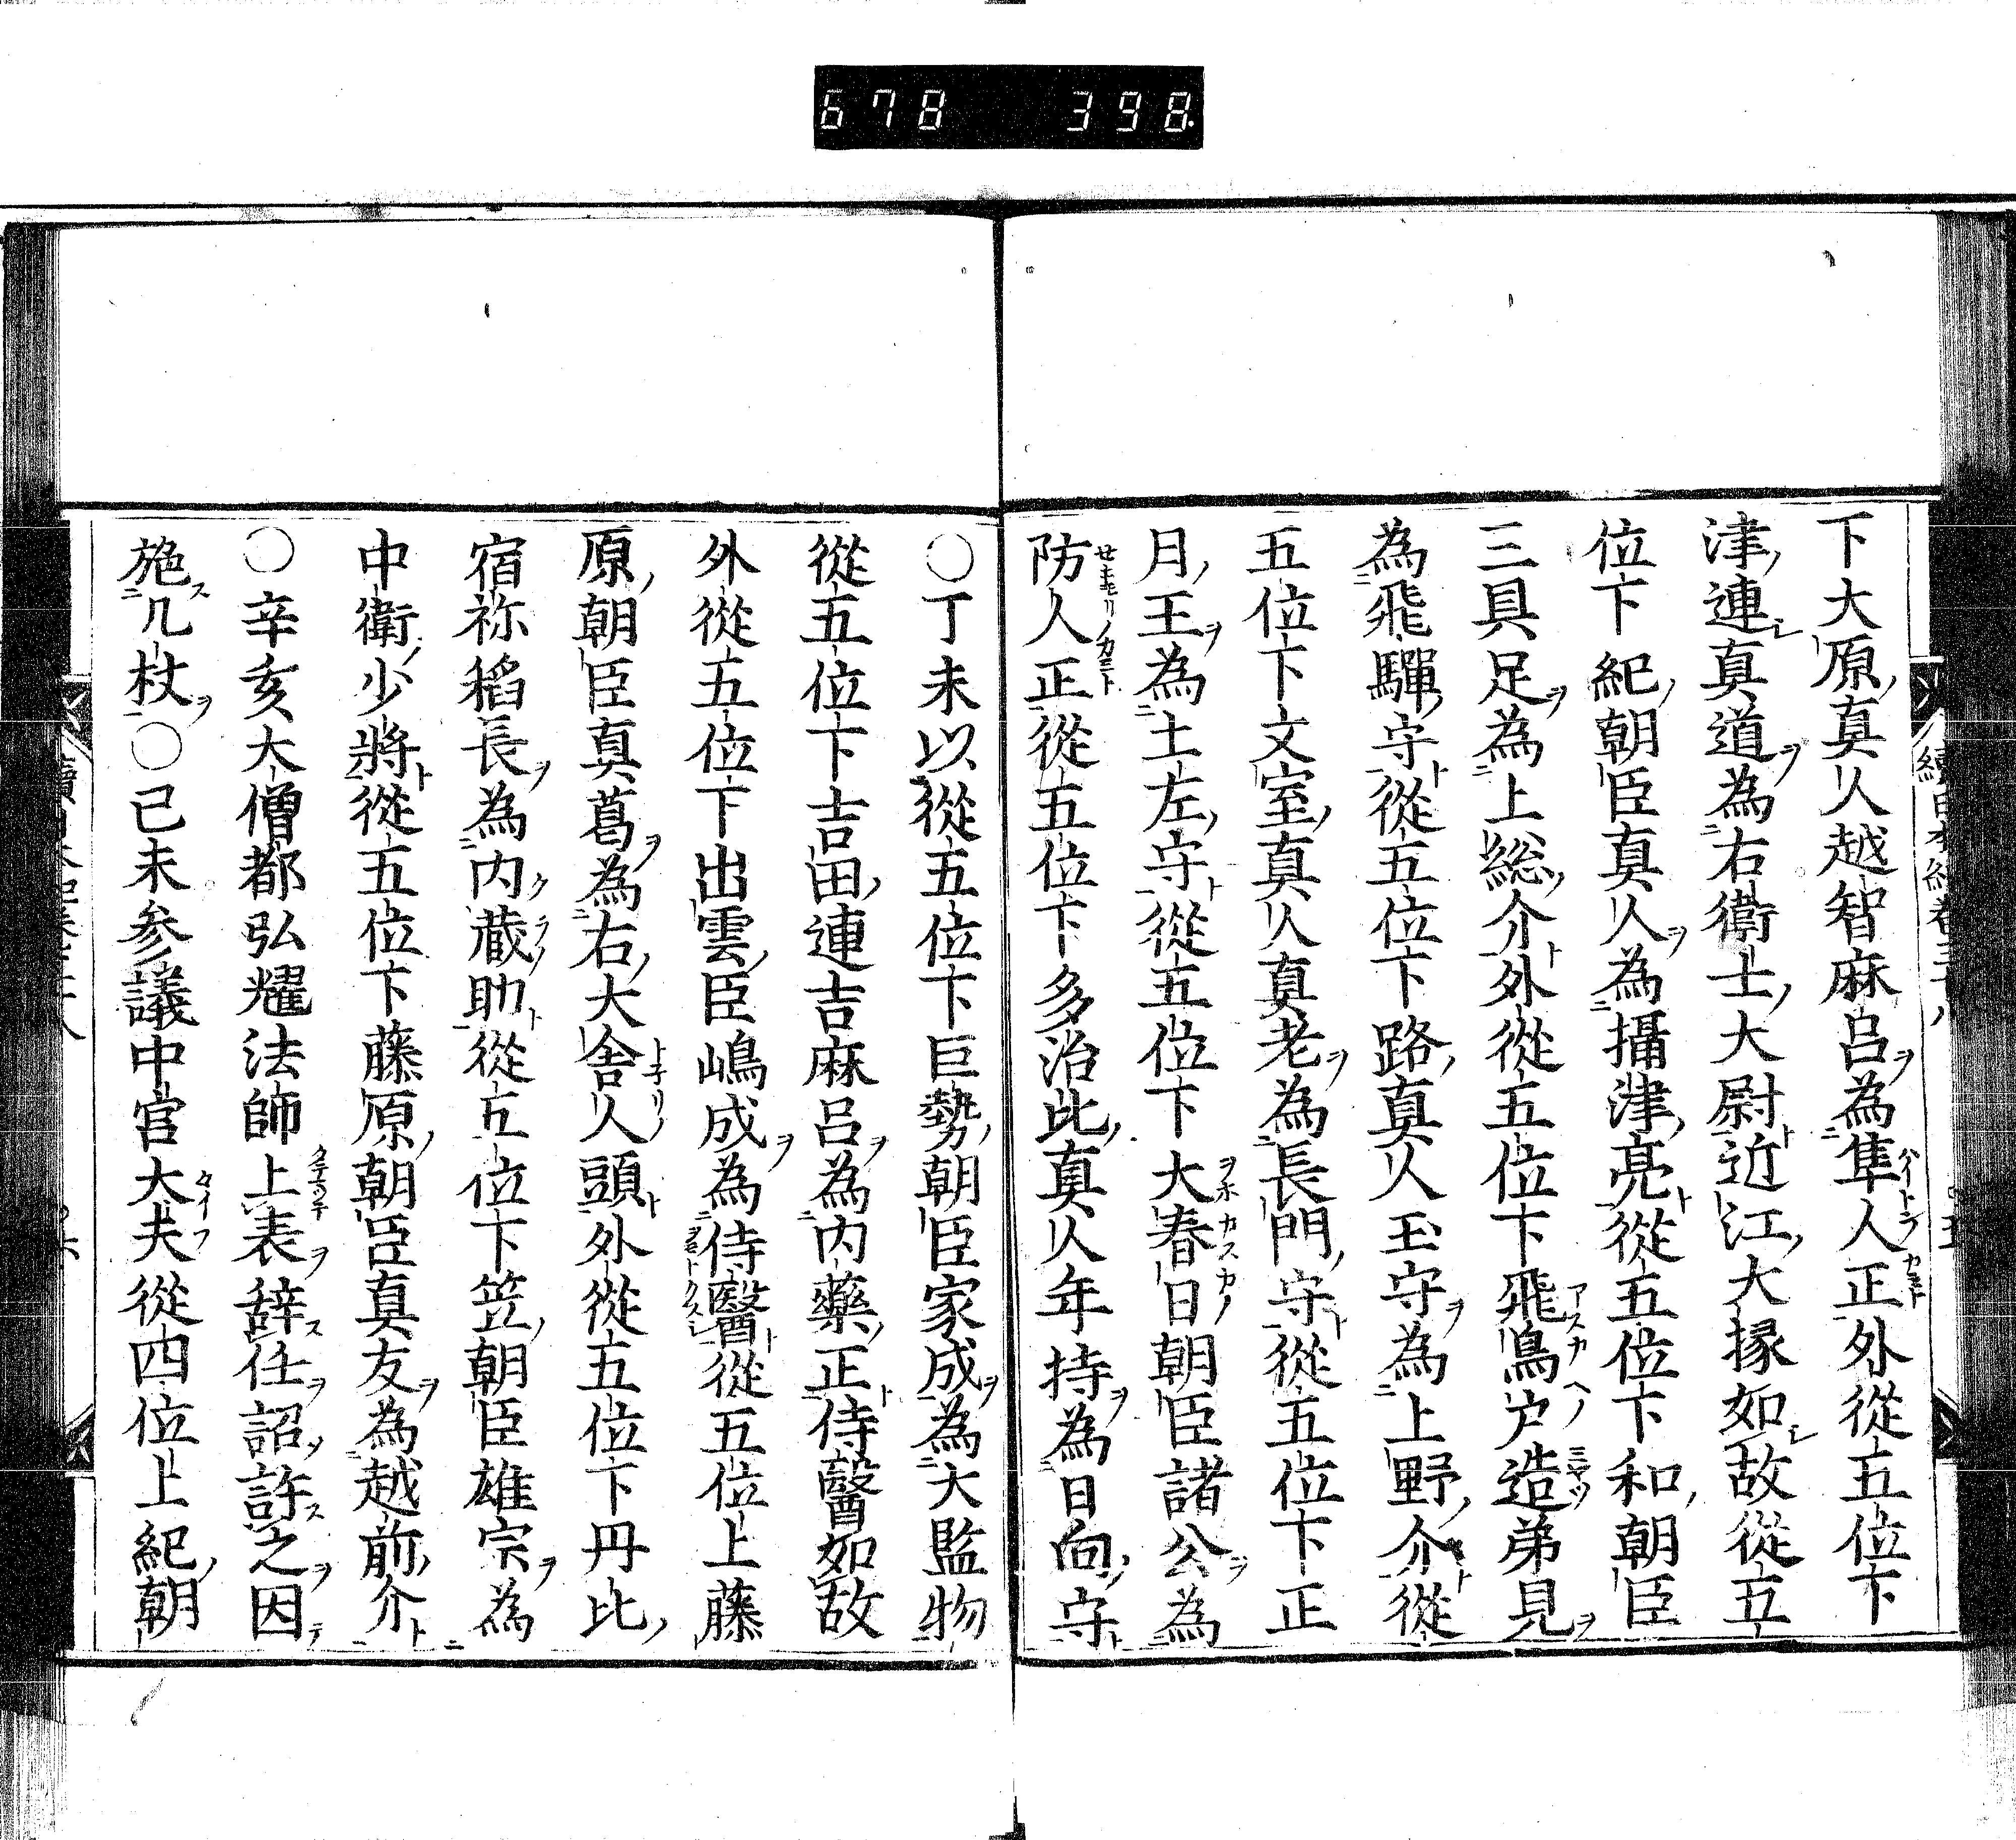 678 398
下大原真人越智麻呂為隼人正外從五位下
津連真道為右衛士大尉近江大掾如故從五
位下紀朝臣真人為攝津亮從五位下和朝臣
三具足為上総介外從五位下飛鳥戸造弟見
為飛驒守從五位下路真人玉守為上野介從
五位下文室真人真老為長門守從五位下正
月王為土左守從五位下大春日朝臣諸公為
防人正從五位下多治比真人年持為日向守
〇丁未以從五位下巨勢朝臣家成為大監物
從五位下吉田連吉麻呂為内藥正侍醫如故
外從五位下出雲臣嶋成為侍醫從五位上藤
原朝臣真葛為右大舎人頭外從五位下丹比
宿祢稻長為内藏助從五位下笠朝臣雄宗為
中衛少將從五位下藤原朝臣真友為越前介
〇辛亥大僧都弘耀法師上表辞任詔許之因
施几杖〇己未参議中宮大夫從四位上紀朝